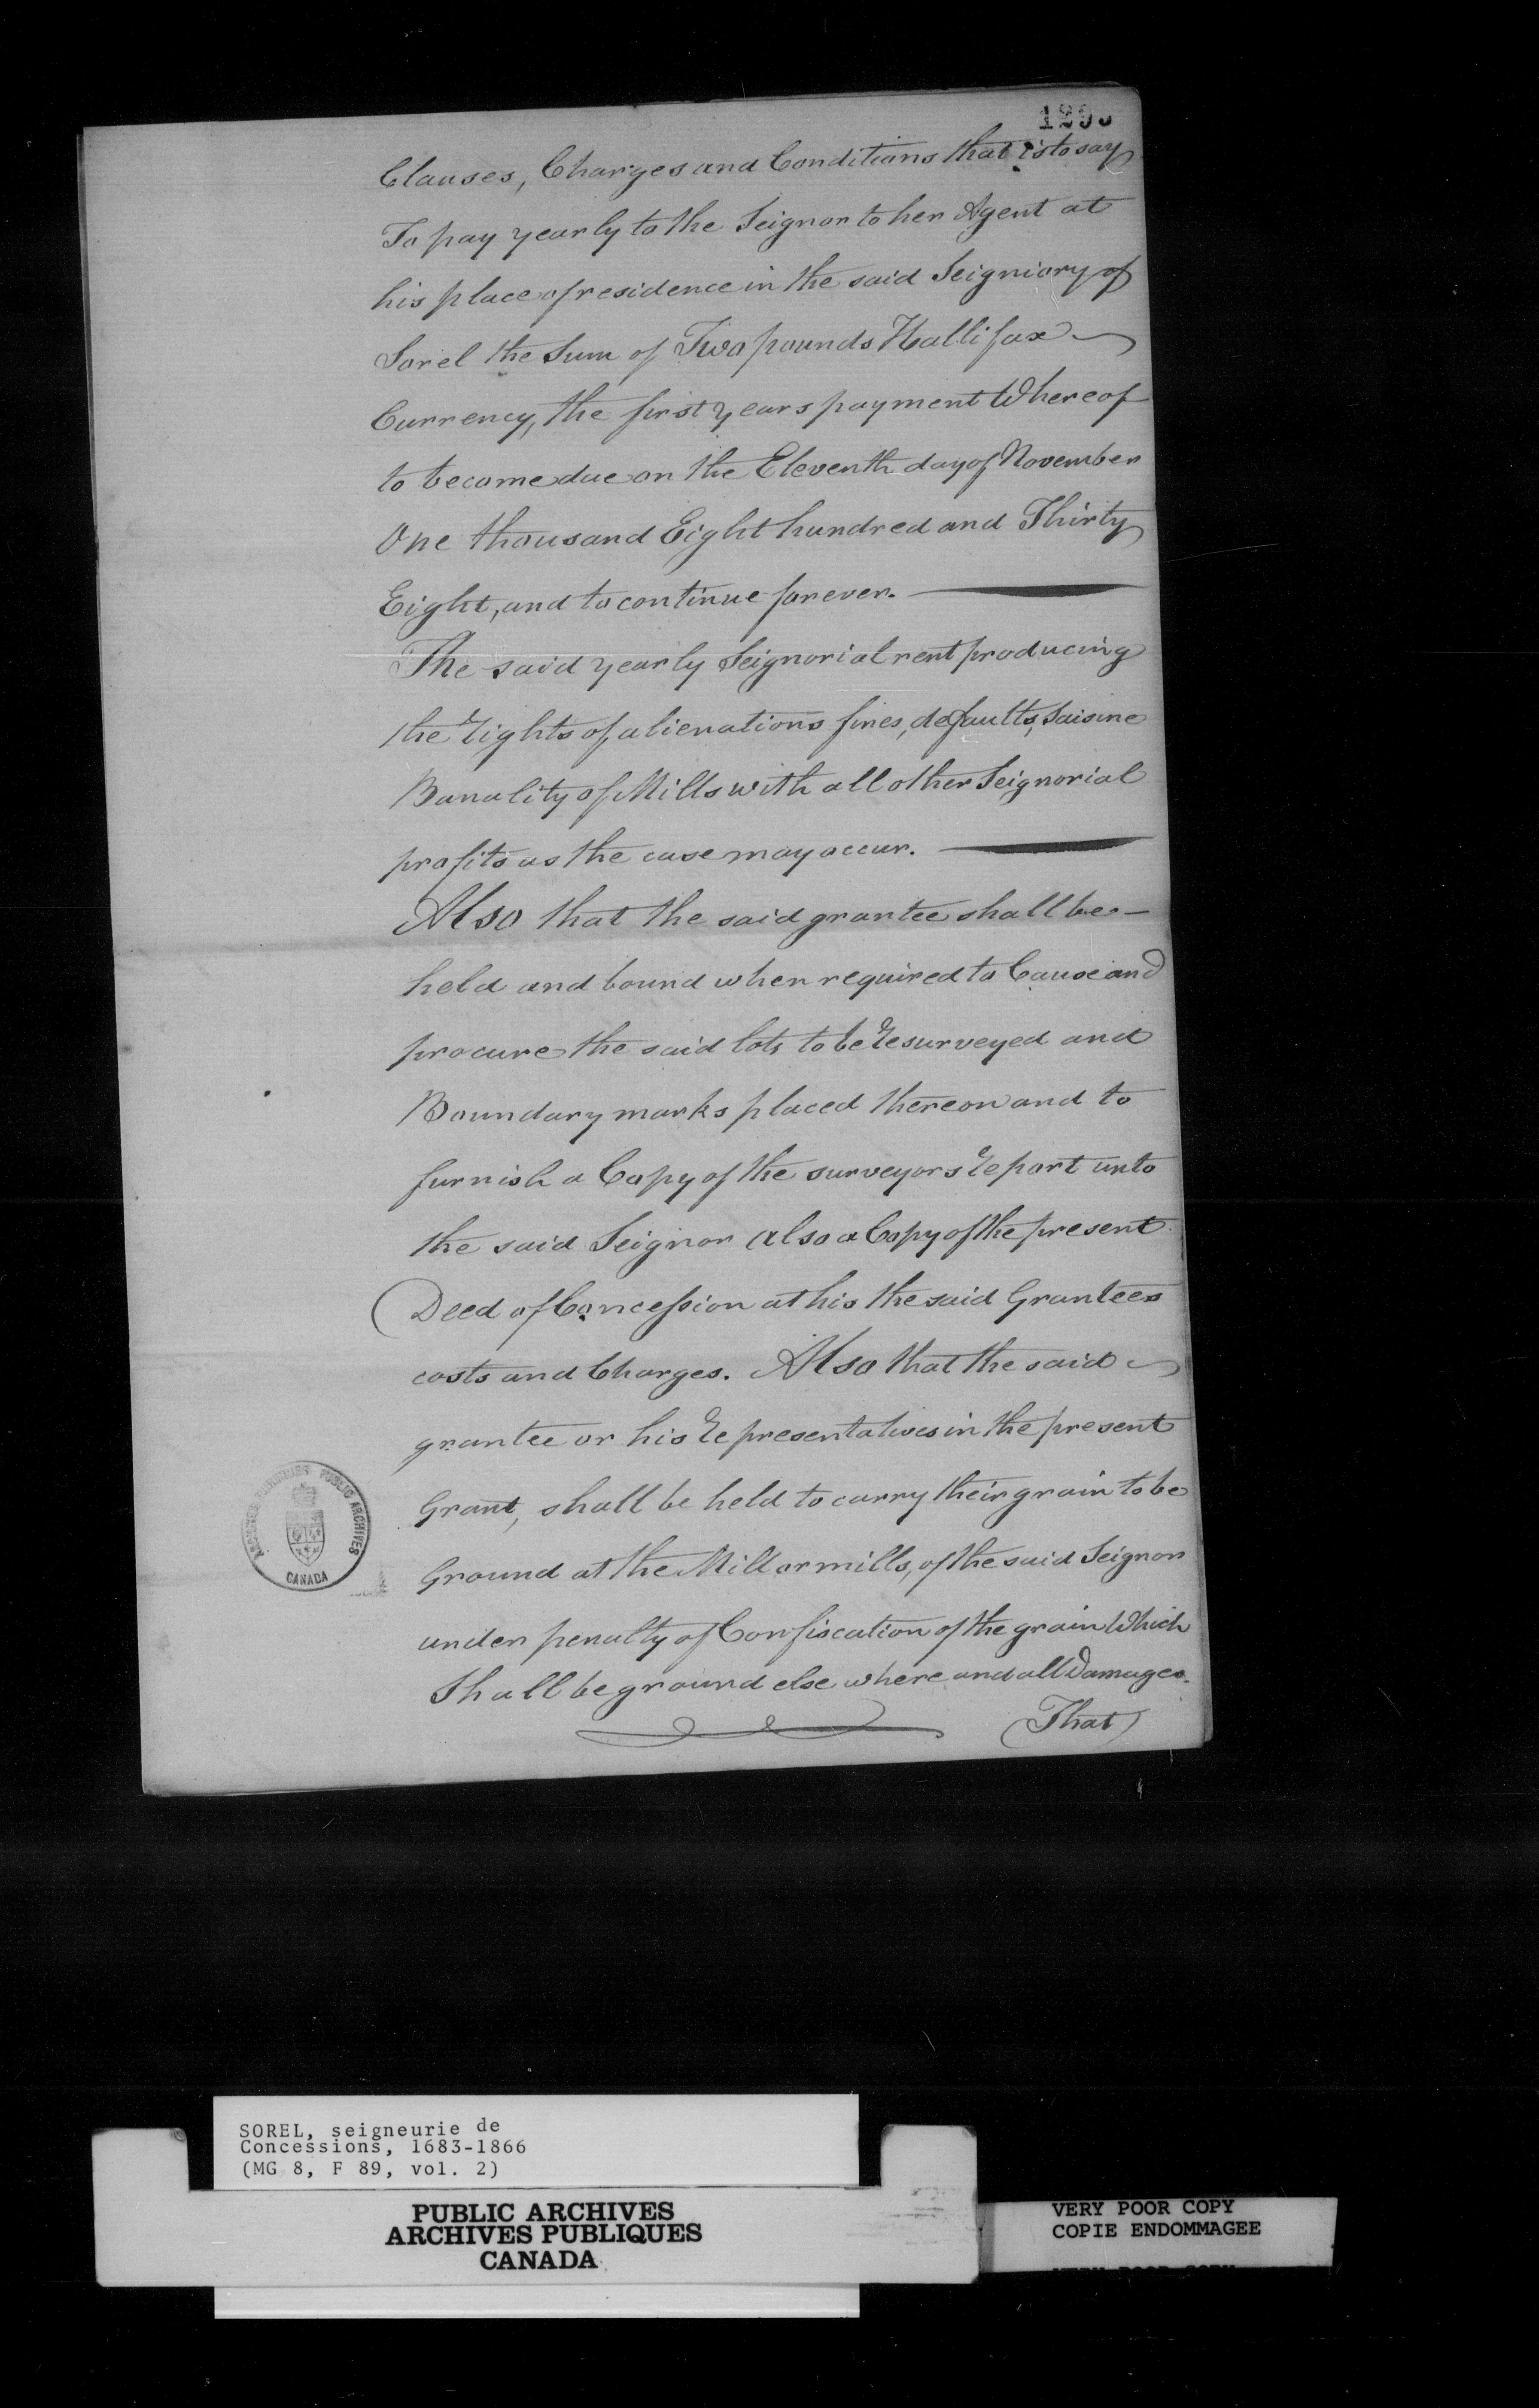 Clauses, Charges and Conditions that is to say
To pay yearly to the Seignor to her Agent at
his place of residence in the said Seigniory of
Sorel the Sum of Two pounds Hallifax
Currency, the first years payment Whereof
to become due on the Eleventh day of November
One thousand Eight hundred and Thirty
Eight, and to continue forever.
The said yearly Seignorial rent producing
the Rights of alienations fines, defaults, Saisine
Banality of Mills with all other Seignorial
profits as the case may occur.
Also that the said grantee shall be
held and bound when required to Cause and
procure the said lots to be Resurveyed and
Boundary marks placed thereon and to
furnish a Copy of the surveyors Report unto
the said Seignor Also a Copy of the present
Deed of Concession at his the said Grantees
costs and Charges. Also that the said
grantee or his Representatives in the present
Grant, shall be held to carry their grain to be
Ground at the Mill or mills, of the said Seignor
under penalty of Confiscation of the grain Which
Shall be ground else where and all Damages.
That
ARCHIVES PUBLIQUES PUBLIC ARCHIVES
CANADA
SOREL, seigneurie de
Concessions, 1683-1866
(MG 8, F 89, vol. 2)
PUBLIC ARCHIVES
ARCHIVES PUBLIQUES
CANADA
VERY POOR COPY
COPIE ENDOMMAGEE
VERY POOR COPY